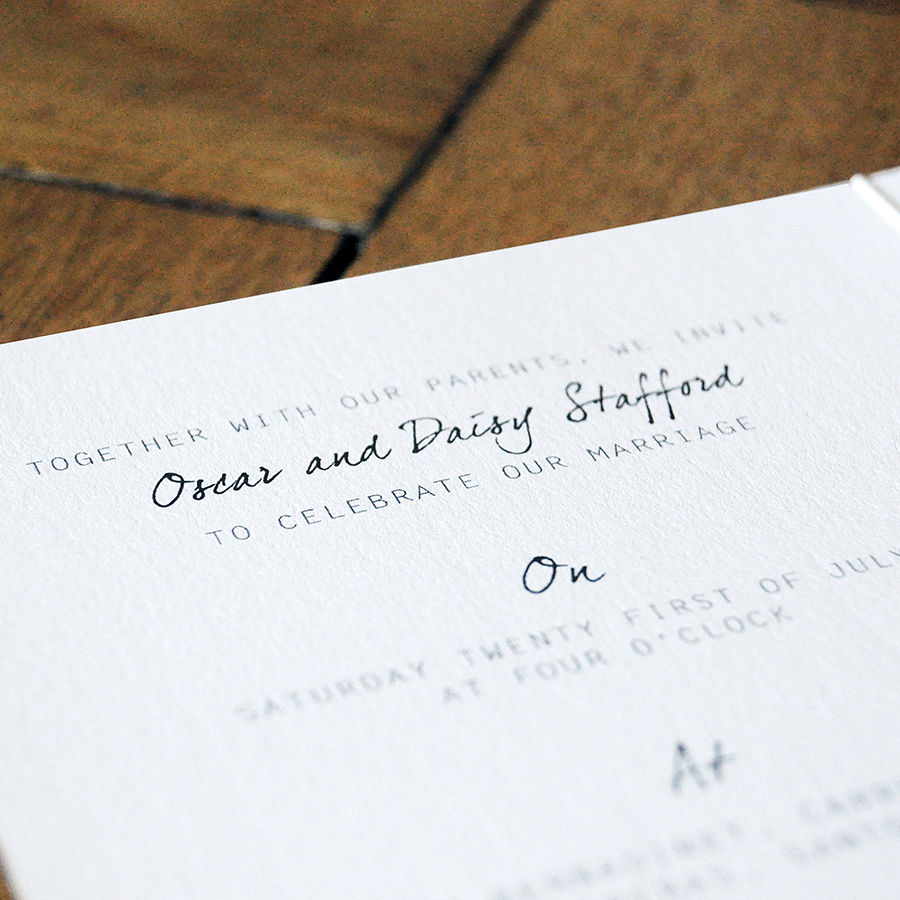 TOGETHER WITH OUR PARENTS, WE INVITE
Oscar and Daisy Stafford
TO CELEBRATE OUR MARRIAGE
On
SATURDAY TWENTY FIRST OF JULY
AT FOUR O'CLOCK
At